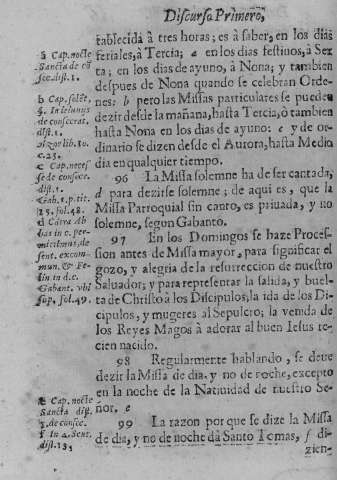 Discurso Primero,
tablecida à tres horas; es à saber, en los dias
feriales, à Tercia; a en los dias festiuos, à Sex
ta; en los dias de ayuno, à Nona; y tambien
despues de Nona quando se celebran Orde-
nes: b pero las Missas particulares se pueden
dezir desde la mañana, hasta Tercia, ò tambien
hasta Nona en los dias de ayuno: c y de or-
dinario se dizen desde el Aurora, hasta Medio
dia en qualquier tiempo.
96 La Missa solemne ha de ser cantada,
d para dezirse solemne; de aqui es, que la
Missa Parroquial sin canto, es priuada, y no
solemne, segun Gabanto.
97 En los Domingos se haze Proces-
sion antes de Missa mayor, para significar el
gozo, y alegria de la resurreccion de nuestro
Saluador; y para representar la salida, y buel-
ta de Christo à los Discipulos; la ida de los Di-
cipulos, y mugeres al Sepulcro; la venida de
los Reyes Magos à adorar al buen Iesus re-
cien nacido.
98 Regularmente hablando, se deve
dezir la Missa de dia, y no de noche, excepto
en la noche de la Natiuidad de nuestro Se-
ñor. e
99 La razon por que se dize la Missa
de dia, y no de noche dà Santo Tomas, f di-
zien-
a Cap. nocte
Sancta de cō
sec. dist. 1.
b Cap. solēt,
§. In ieiunijs
de consecrat.
dist. 1.
lib. 10.
c. 23.
c Cap. neces
se de consec.
dist. 1.
Gab. 1. p. tit.
15. fol. 48.
d Ab
bas in c. per-
de
sent. excom-
mun. & Fe-
lin. in d. c.
Gabant. vbi
sup. fol. 49.
e Cap. nocte
Sancta dist.
1. de consec.
f In 4. Sent.
dist. 13.